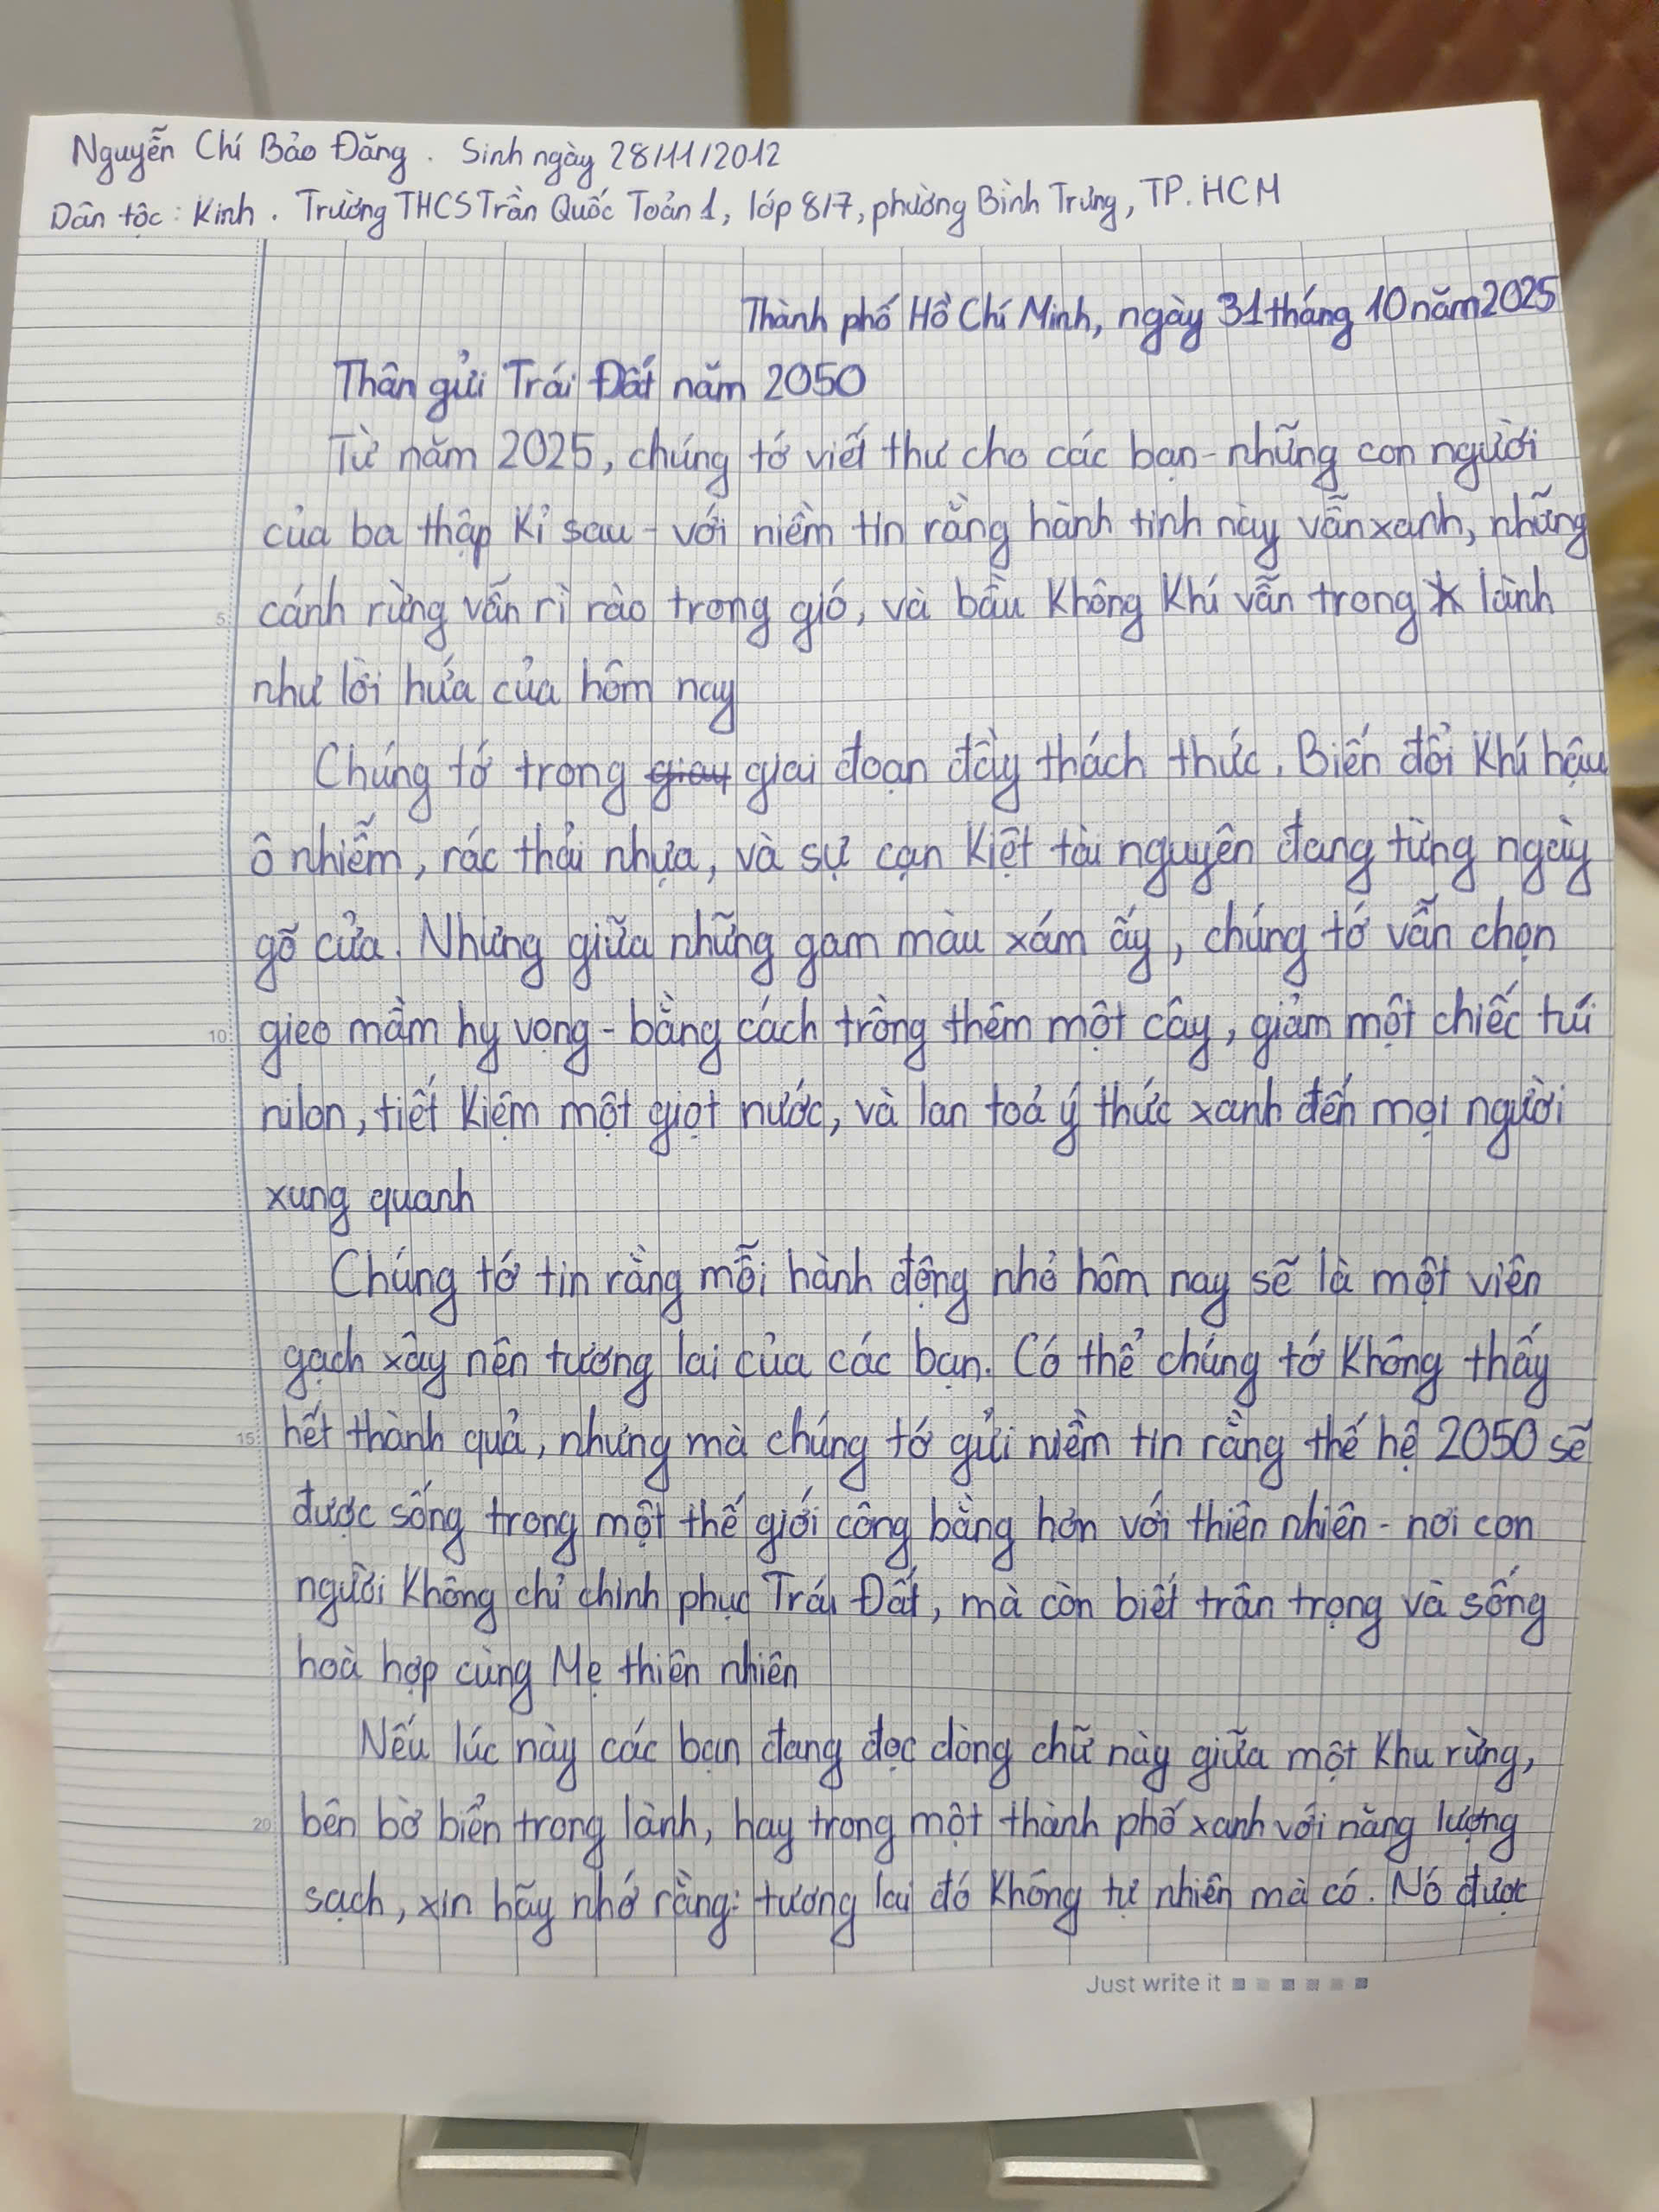 Nguyễn Chí Bảo Đăng. Sinh ngày 28/11/2012
Dân tộc: Kinh. Trường THCS Trần Quốc Toản 1, lớp 8/7, phường Bình Trưng, TP. HCM
Thành phố Hồ Chí Minh, ngày 31 tháng 10 năm 2025
Thân gửi Trái Đất năm 2050
Từ năm 2025, chúng tớ viết thư cho các bạn - những con người
của ba thập kỉ sau - với niềm tin rằng hành tinh này vẫn xanh, những
5
cánh rừng vẫn rì rào trong gió, và bầu không khí vẫn trong lành
như lời hứa của hôm nay
Chúng tớ trong giai đoạn đầy thách thức. Biến đổi khí hậu
ô nhiễm, rác thải nhựa, và sự cạn kiệt tài nguyên đang từng ngày
gõ cửa. Nhưng giữa những gam màu xám ấy, chúng tớ vẫn chọn
10
gieo mầm hy vọng - bằng cách trồng thêm một cây, giảm một chiếc túi
nilon, tiết kiệm một giọt nước, và lan toả ý thức xanh đến mọi người
xung quanh
Chúng tớ tin rằng mỗi hành động nhỏ hôm nay sẽ là một viên
gạch xây nên tương lai của các bạn. Có thể chúng tớ không thấy
15
hết thành quả, nhưng mà chúng tớ gửi niềm tin rằng thế hệ 2050 sẽ
được sống trong một thế giới công bằng hơn với thiên nhiên - nơi con
người không chỉ chinh phục Trái Đất, mà còn biết trân trọng và sống
hoà hợp cùng Mẹ thiên nhiên
Nếu lúc này các bạn đang đọc dòng chữ này giữa một khu rừng,
20
bên bờ biển trong lành, hay trong một thành phố xanh với năng lượng
sạch, xin hãy nhớ rằng: tương lai đó không tự nhiên mà có. Nó được
Just write it